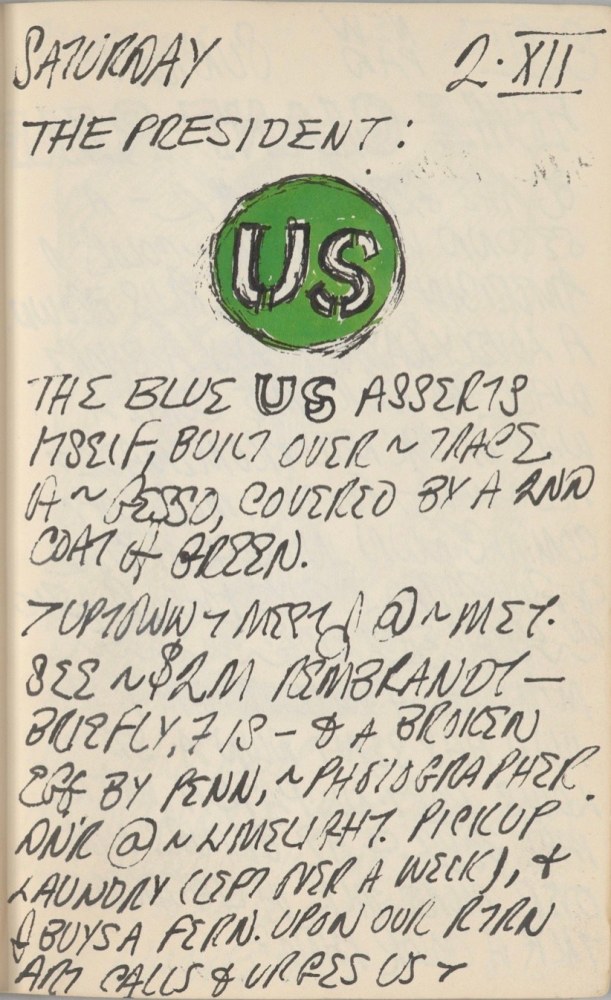 SATURDAY 2·XII
THE PRESIDENT:
US
THE BLUE US ASSERTS
ITSELF, BUILT OVER ~ TRACE
~ GESSO, COVERED BY A 2ND
COAT of GREEN.
UPTOWN MEET @ ~ MET.
SEE ~ $2M REMBRANDT —
BRIEFLY, 7 IS — & A BROKEN
EGG BY PENN, ~ PHOTOGRAPHER.
DN'R @ ~ LIMELIGHT. PICKUP
LAUNDRY (LEFT OVER A WEEK), &
BUYS A FERN. UPON OUR RTRN
ART CALLS & URGES US